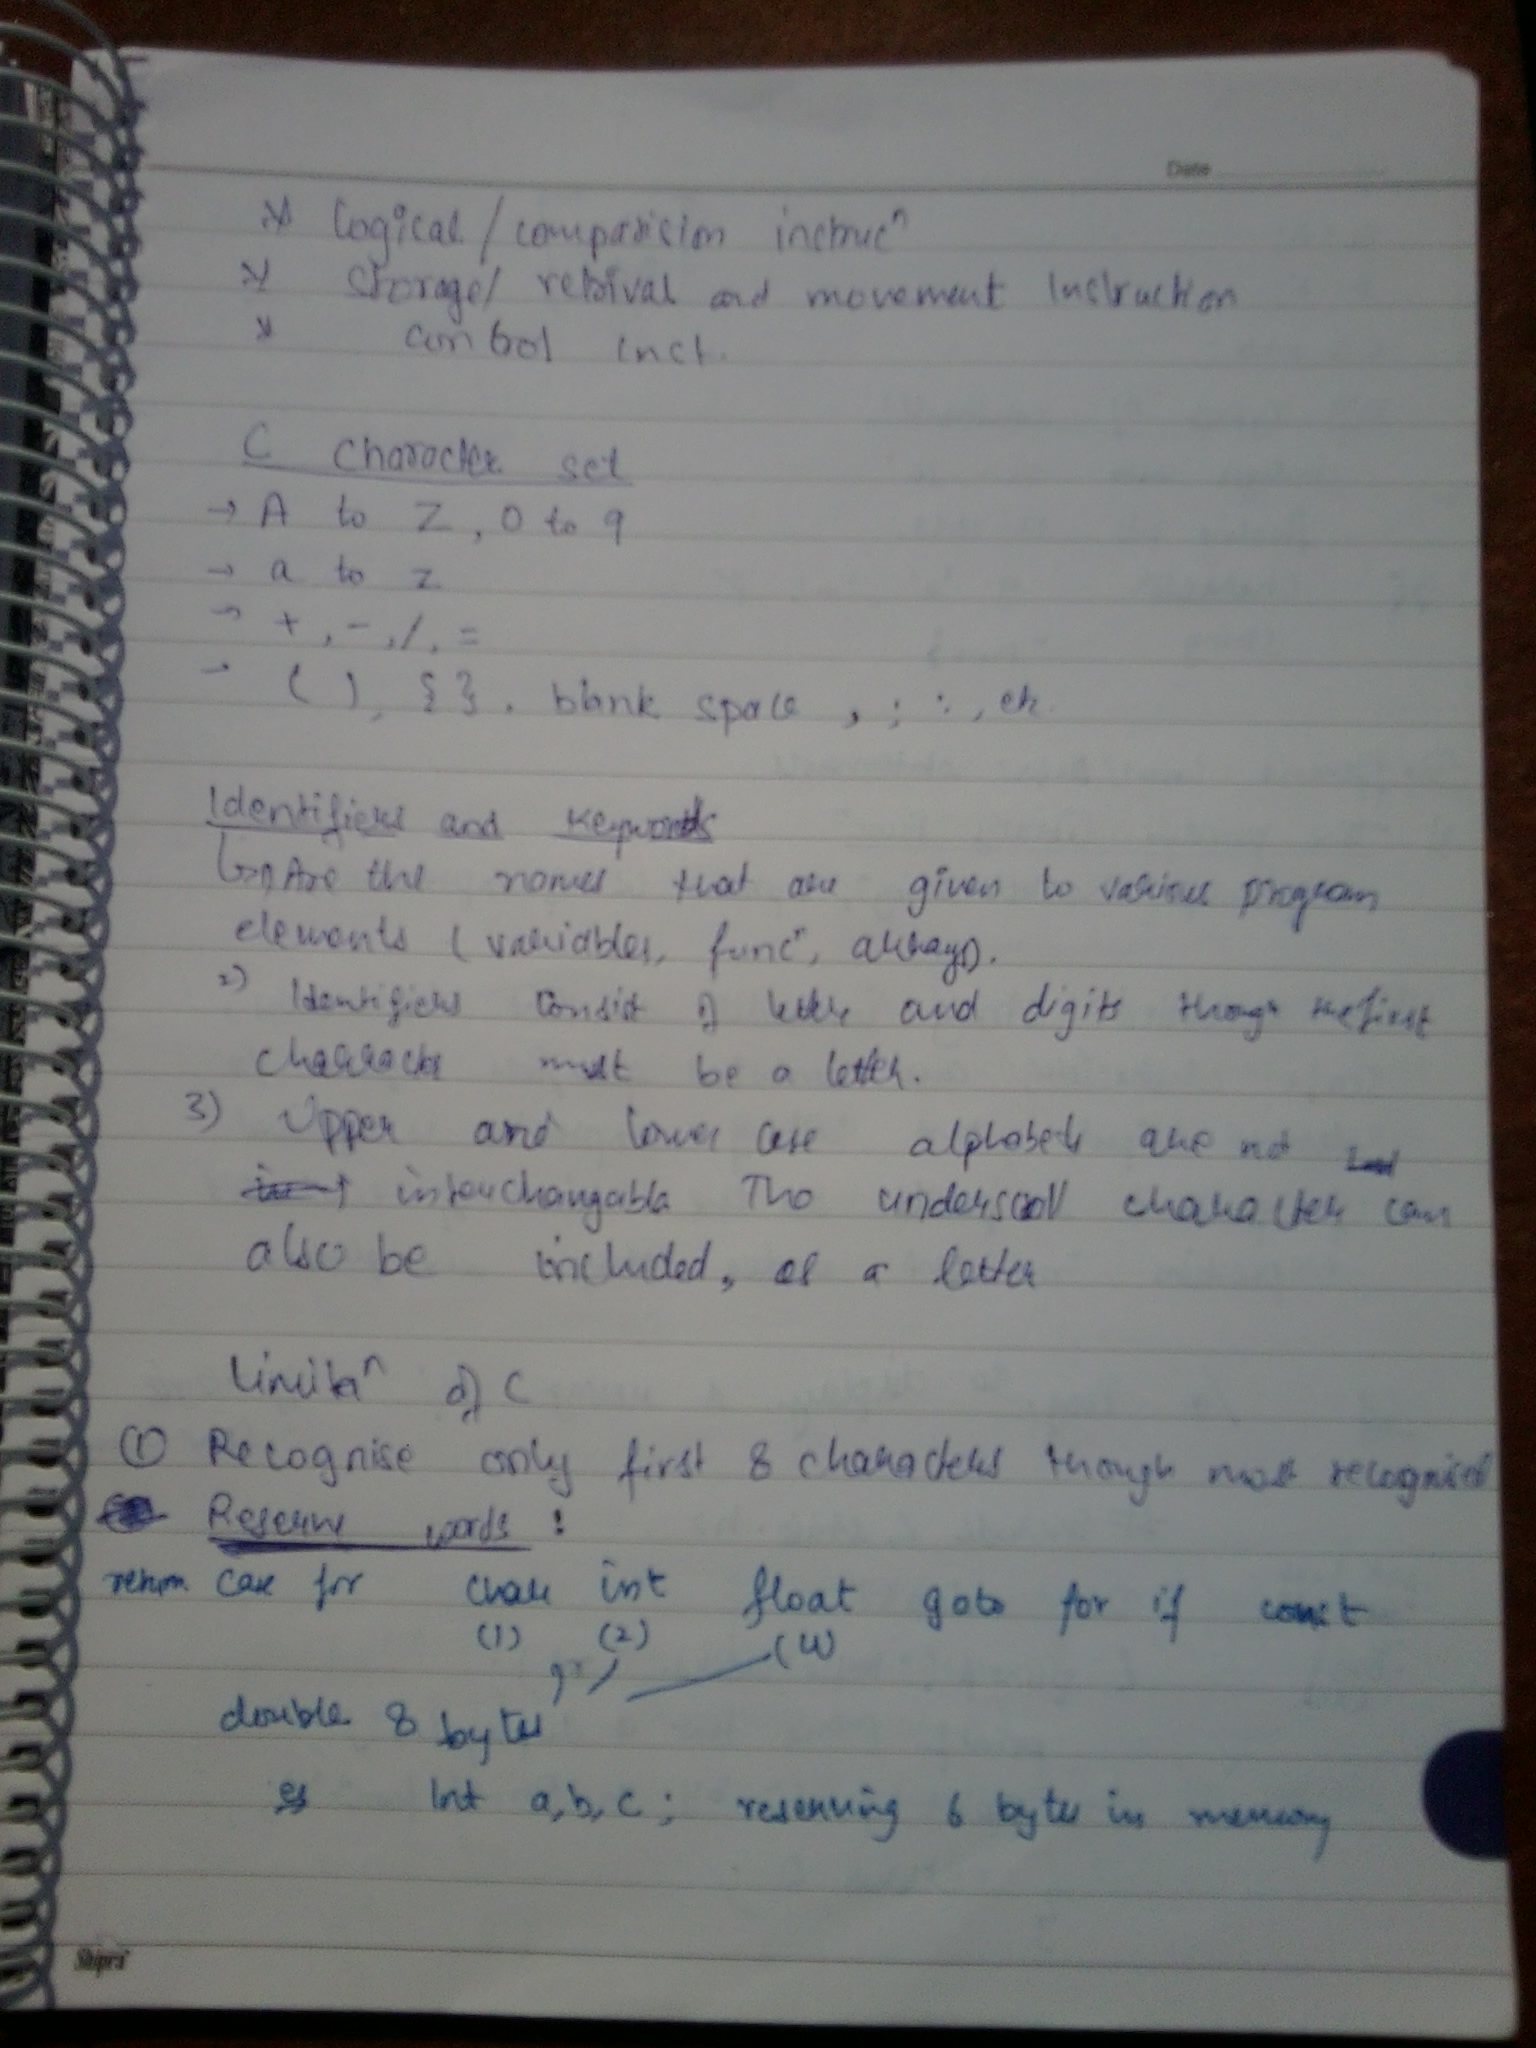 Date
* Logical / comparision instrucn
* Storage/ retrival and movement Instruction
* control inst.
C character set
→ A to Z, 0 to 9
→ a to z
→ +, -, /, =
→ ( ), { }, blank space , ; : , etc.
Identifiers and keywords
↳ 1) Are the names that are given to various program
elements (variables, funcn, arrays).
2) Identifiers consist of letter and digits though the first
character must be a letter.
3) Upper and lower case alphabets are not
interchangable The underscoll character can
also be included, as a letter
Limitan of C
① Recognise only first 8 characters though most recognised
Reserve words :
return case for char int float goto for if const
(1) (2) (4)
double 8 bytes
eg Int a, b, c ; reserving 6 bytes in memory
Shipra